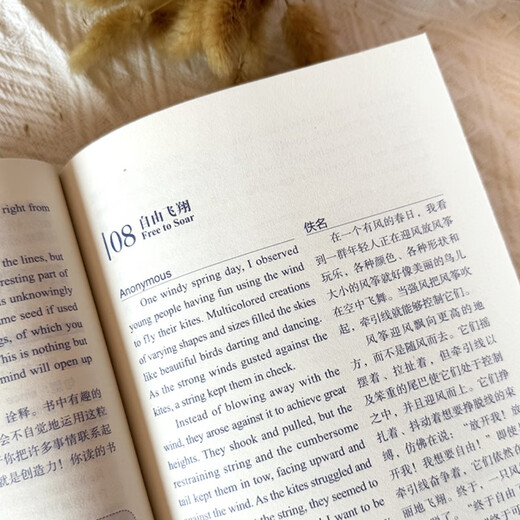 right from
the lines, but
resting part of
unknowingly
me seed if used
gs, of which you
This is nothing but
mind will open up
诠释。书中有趣的
会不自觉地运用这粒
你把许多事情联系起
就是创造力！你读的书
08 自由飞翔
Free to Soar
Anonymous
One windy spring day, I observed
young people having fun using the wind
to fly their kites. Multicolored creations
of varying shapes and sizes filled the skies
like beautiful birds darting and dancing.
As the strong winds gusted against the
kites, a string kept them in check.
Instead of blowing away with the
wind, they arose against it to achieve great
heights. They shook and pulled, but the
restraining string and the cumbersome
tail kept them in tow, facing upward and
against the wind. As the kites struggled and
against the string, they seemed to
I want to be
佚名
在一个有风的春日，我看
到一群年轻人正在迎风放风筝
玩乐，各种颜色、各种形状和
大小的风筝就好像美丽的鸟儿
在空中飞舞。当强风把风筝吹
起，牵引线就能够控制它们。
风筝迎风飘向更高的地
方，而不是随风而去。它们摇
摆着、拉扯着，但牵引线以
及笨重的尾巴使它们处于控制
之中，并且迎风而上。它们挣
扎着、抖动着想要挣脱线的束
缚，仿佛在说：“放开我！放
开我！我想要自由！”即使
牵引线争着，它们依然在
丽地飞翔。终于，一只风
“终于自由了